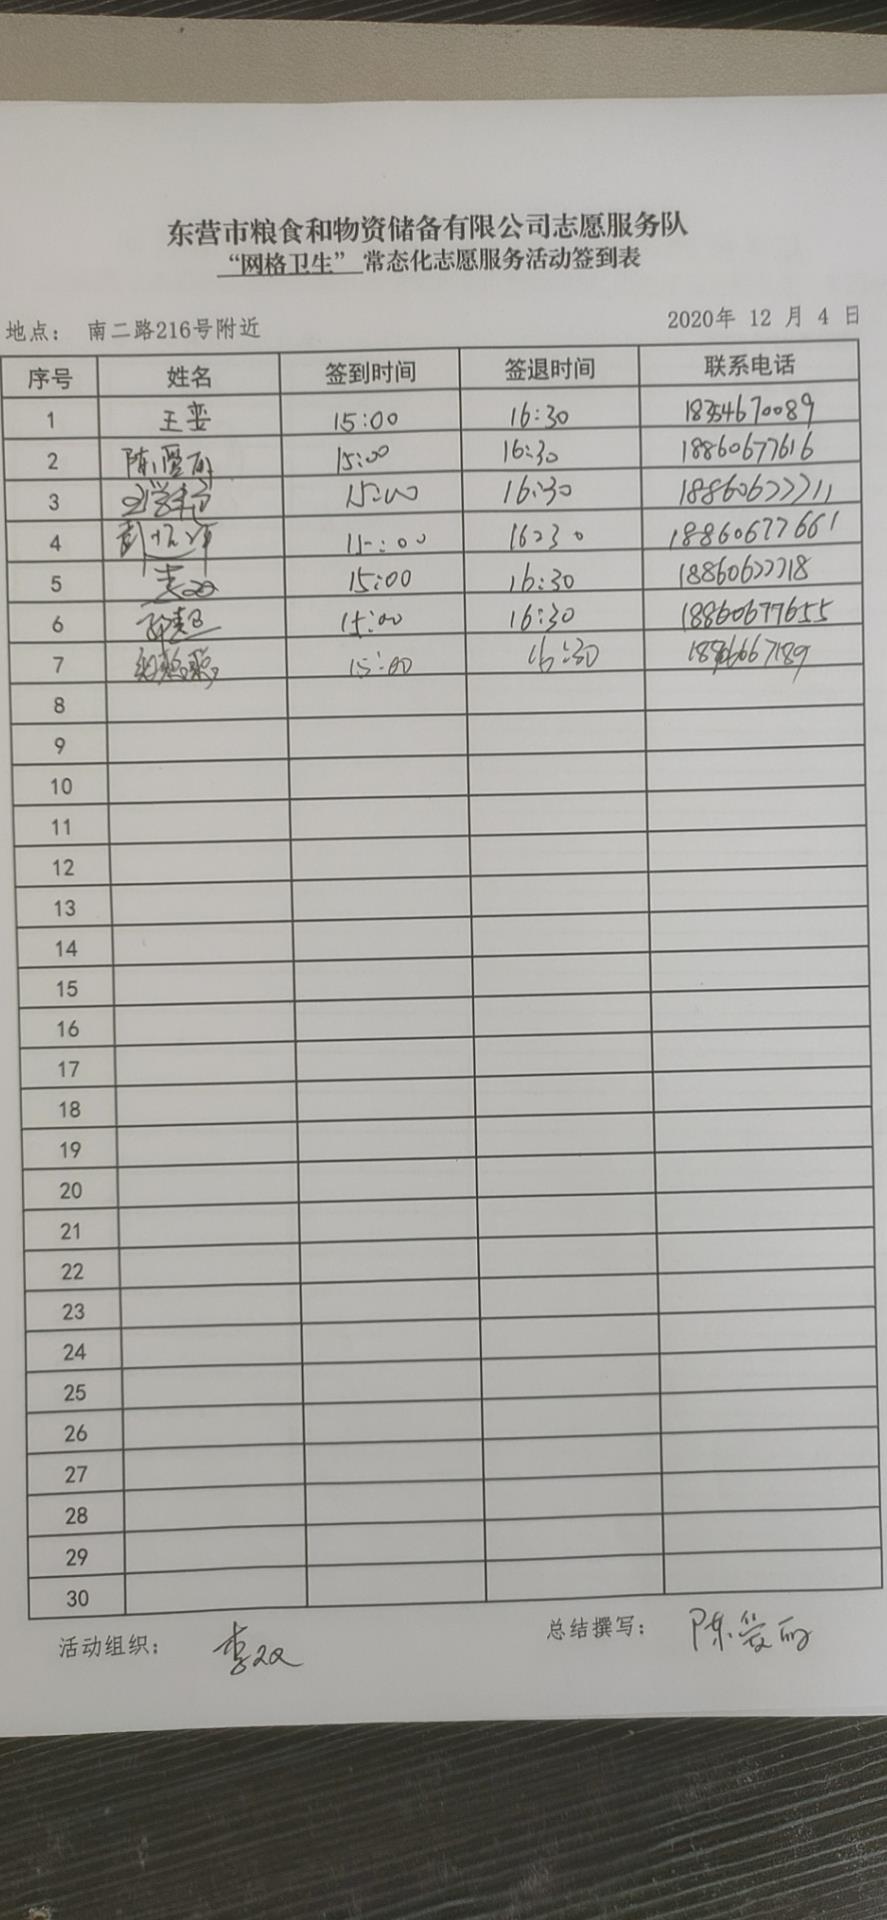 东营市粮食和物资储备有限公司志愿服务队
“网格卫生” 常态化志愿服务活动签到表
地点： 南二路216号附近 2020年 12 月 4 日
序号 姓名 签到时间 签退时间 联系电话
1 王娄 15:00 16:30 18354670089
2 陈爱丽 15:00 16:30 18860677616
3 15:00 16:30 18860677711
4 15:00 16:30 18860677661
5 李双 15:00 16:30 18860677718
6 15:00 16:30 18860677655
7 15:00 16:30
8
9
10
11
12
13
14
15
16
17
18
19
20
21
22
23
24
25
26
27
28
29
30
活动组织： 李双 总结撰写： 陈爱丽